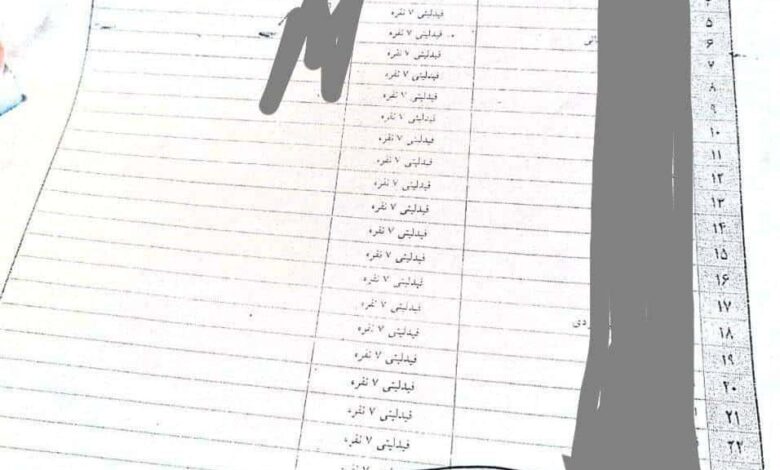 ۵ فیدلیتی ۷ نفره
۶ فیدلیتی ۷ نفره
۷ فیدلیتی ۷ نفره
۸ فیدلیتی ۷ نفره
۹ فیدلیتی ۷ نفره
۱۰ فیدلیتی ۷ نفره
۱۱ فیدلیتی ۷ نفره
۱۲ فیدلیتی ۷ نفره
۱۳ فیدلیتی ۷ نفره
۱۴ فیدلیتی ۷ نفره
۱۵ فیدلیتی ۷ نفره
۱۶ فیدلیتی ۷ نفره
۱۷ فیدلیتی ۷ نفره
۱۸ ردی فیدلیتی ۷ نفره
۱۹ فیدلیتی ۷ نفره
۲۰ فیدلیتی ۷ نفره
۲۱ فیدلیتی ۷ نفره
۲۲ فیدلیتی ۷ نفره
فیدلیتی ۷ نفره